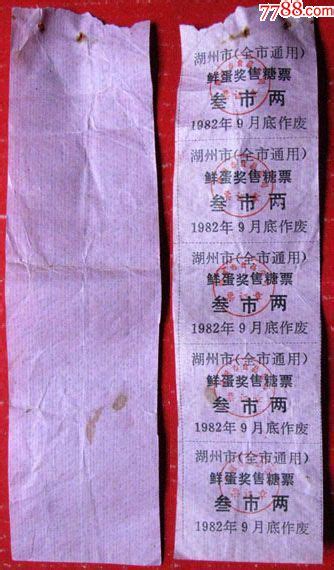 7788.com
湖州市(全市通用)
鲜蛋奖售糖票
叁市两
1982年9月底作废
湖州市(全市通用)
鲜蛋奖售糖票
叁市两
1982年9月底作废
湖州市(全市通用)
鲜蛋奖售糖票
叁市两
1982年9月底作废
湖州市(全市通用)
鲜蛋奖售糖票
叁市两
1982年9月底作废
湖州市(全市通用)
鲜蛋奖售糖票
叁市两
1982年9月底作废